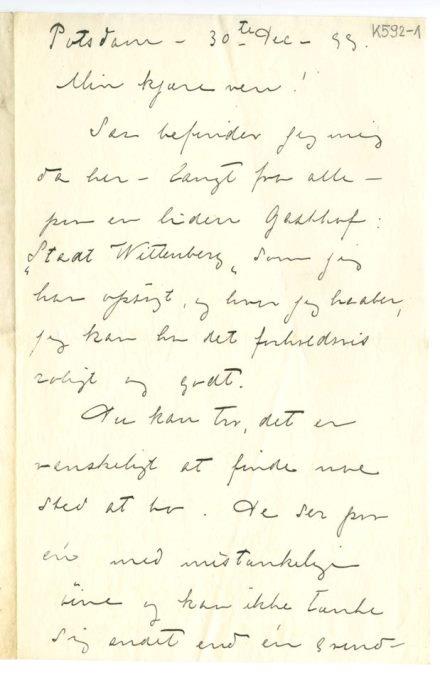 Potsdam – 30te Dec – 99.
K592-1
Min kjære ven!
Saa befinder jeg mig
da her – langt fra alle –
paa en liden Gasthof:
"Stadt Wittenberg" som jeg
har opsøgt, og hvor jeg haaber,
jeg kan ha det forholdsvis
roligt og godt.
Du kan tro, det er
vanskeligt at finde noe
sted at bo. De ser paa
én med mistænkelige
øine og kan ikke tænke
sig andet end én grund –